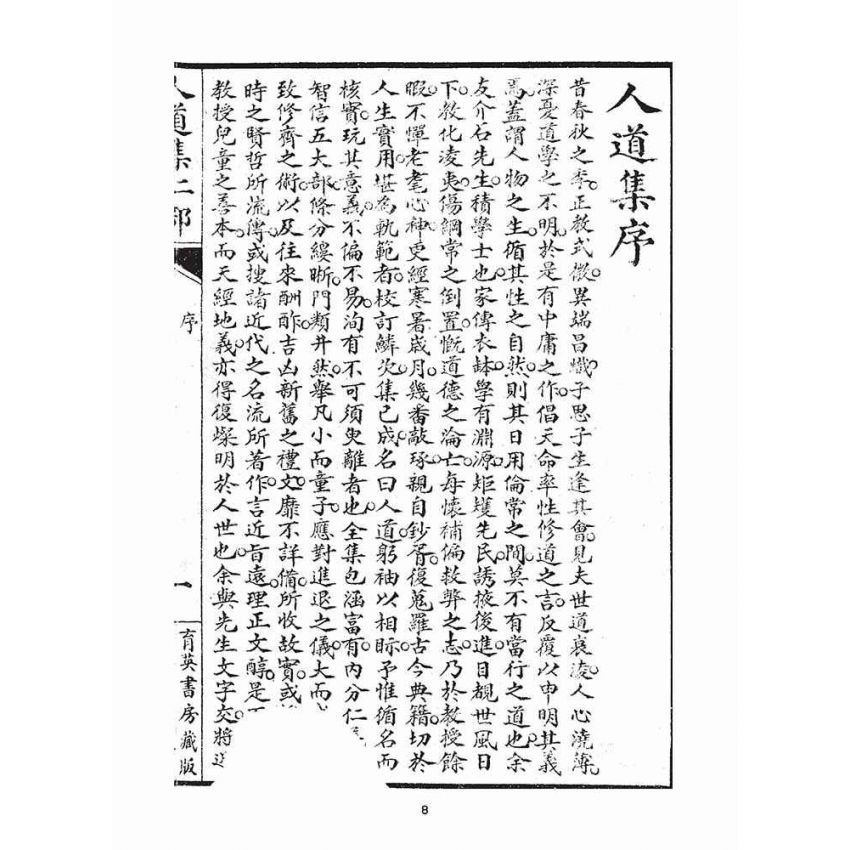 人道集序
昔春秋之季。正教式微。異端昌熾。子思子生逢其會。見夫世道衰凌。人心澆薄。
深憂道學之不明。於是有中庸之作。倡天命率性修道之言。反覆以申明其義
焉。蓋謂人物之生。循其性之自然。則其日用倫常之間。莫不有當行之道也。余
友介石先生。積學士也。家傳衣缽。學有淵源。矩矱先民。誘掖後進。目覩世風日
下。教化凌夷。傷綱常之倒置。慨道德之淪亡。每懷補偏救弊之志。乃於教授餘
暇。不憚老耄。心神叓經寒暑。歲月幾番。敲琢親自鈔胥。復蒐羅古今典籍。切於
人生實用。堪為軌範者。校訂鱗次。集已成。名曰人道。躬袖以相眎。予惟循名而
核實。玩其意義。不偏不易。洵有不可須臾離者也。全集包涵富有。內分仁
智信五大部。條分縷晰。門類井然。舉凡小而童子應對進退之儀。大而
致修齊之術。以及往來酬酢。吉凶新舊之禮文。靡不詳備。所收故實。或
時之賢哲所流傳。或搜諸近代之名流所著作。言近旨遠。理正文醇。是
教授兒童之善本。而天經地義亦得復燦明於人世也。余與先生文字交。將
人道集二部
序
一
育英書房藏版
8